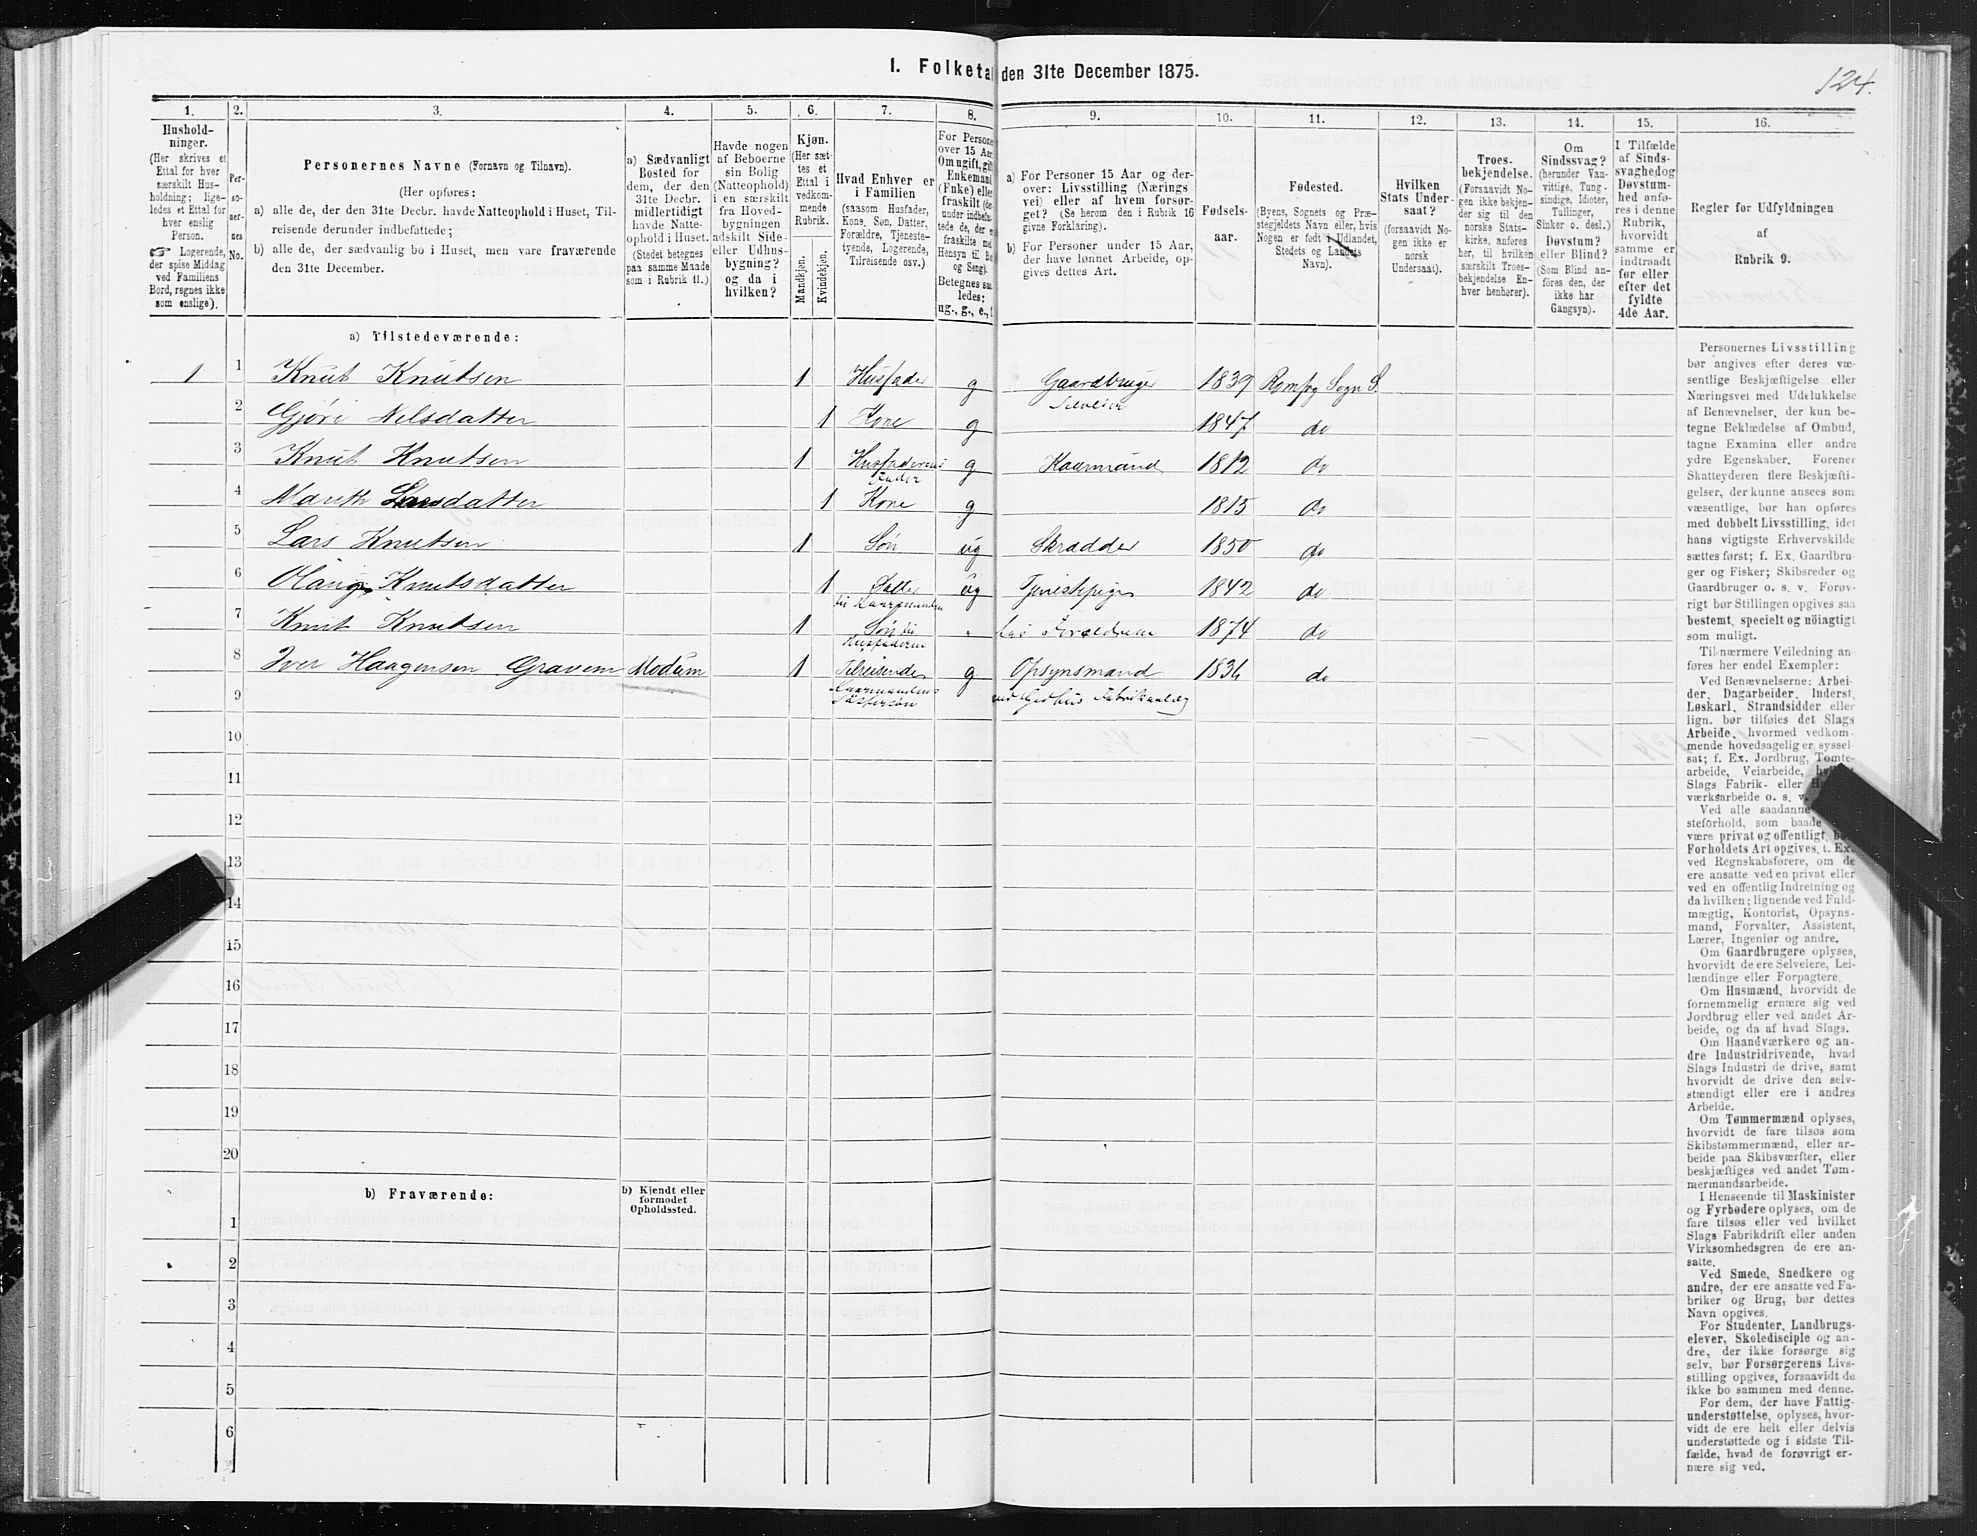 124.
I. Folketal den 31te December 1875.
1. 2. 3. 4. 5. 6. 7. 8. 9. 10. 11. 12. 13. 14. 15. 16.
Hushold-
ninger.
(Her skrives et
Ettal for hver
særskilt Hus-
holdning; lige-
ledes et Ettal for
hver enslig
Person.
☞ Logerende,
der spise Middag
ved Familiens
Bord, regnes ikke
som enslige).
Per-
so-
ner-
nes
No.
Personernes Navne (Fornavn og Tilnavn).
(Her opføres:
a) alle de, der den 31te Decbr. havde Natteophold i Huset, Til-
reisende derunder indbefattede;
b) alle de, der sædvanlig bo i Huset, men vare fraværende
den 31te December.
a) Sædvanligt
Bosted for
dem, der den
31te Decbr.
midlertidigt
havde Natte-
ophold i Huset.
(Stedet betegnes
paa samme Maade
som i Rubrik 11.)
Havde nogen
af Beboerne
sin Bolig
(Natteophold)
i en særskilt
fra Hoved-
bygningen
adskilt Side-
eller Udhus-
bygning?
og da i
hvilken?
Kjøn.
(Her sæt-
tes et
Ettal i
vedkom-
mende
Rubrik.
Mandkjøn.
Kvindekjøn.
Hvad Enhver er
i Familien
(saasom Husfader,
Kone, Søn, Datter,
Forældre, Tjeneste-
tyende, Logerende,
Tilreisende osv.)
For Persone
over 15 Aar
Om ugift, gift
Enkemand
(Enke) eller
fraskilt (de
under indbefat-
tede de, der e
fraskilte med
Hensyn til Bo
og Seng).
Betegnes saa
ledes:
ug., g., e., f
a) For Personer 15 Aar og der-
over: Livsstilling (Nærings
vei) eller af hvem forsør-
get? (Se herom den i Rubrik 16
givne Forklaring).
b) For Personer under 15 Aar,
der have lønnet Arbeide, op-
gives dettes Art.
Fødsels-
aar.
Fødested.
(Byens, Sognets og Præ-
stegjeldets Navn eller, hvis
Nogen er født i Udlandet,
Stedets og Landets
Navn).
Hvilken
Stats Under-
saat?
(forsaavidt No-
gen ikke er
norsk
Undersaat).
Troes-
bekjendelse.
(Forsaavidt No-
gen ikke bekjen-
der sig til den
norske Stats-
kirke, anføres
her, til hvilken
særskilt Troes-
bekjendelse En-
hver henhører).
Om
Sindssvag?
(herunder Van-
vittige, Tung-
sindige, Idioter,
Tullinger,
Sinker o. desl.)
Døvstum?
eller Blind?
(Som Blind an-
føres den, der
ikke har
Gangsyn).
I Tilfælde
af Sinds-
svaghed og
Døvstum-
hed anfø-
res i denne
Rubrik,
hvorvidt
samme er
indtraadt
før eller
efter det
fyldte
4de Aar.
Regler før Udfyldningen
af
Rubrik 9.
a) Tilstedeværende:
1 1 Knut Knutsen 1 Husfader g Gaardbruger Selveier 1839 Romfog Sogn S.
2 Gjøri Nelsdatter 1 Kone g 1847 do
3 Knut Knutsen 1 Husfaderens Fader g Kaarmand 1812 do
4 Marith Larsdatter 1 Kone g 1815 do
5 Lars Knutsen 1 Søn ug Skradder 1850 do
6 Olaug Knutsdatter 1 Datter til Kaarmanden ug Tjenestpige 1842 do
7 Knut Knutsen 1 Søn til Husfaderen hos Forældrene 1874 do
8 Iver Haagensen Gravem Modum 1 Tilreisende Kaarmandens Søstersøn g Opsynsmand ved Fabrikanlæg 1836 do
9
10
11
12
13
14
15
16
17
18
19
20
b) Fraværende:
b) Kjendt eller
formodet
Opholdssted.
1
2
3
4
5
6
Personernes Livsstilling
bør angives efter deres væ-
sentlige Beskjæftigelse eller
Næringsvei med Udelukkelse
af Benævnelser, der kun be-
tegne Beklædelse af Ombud,
tagne Examina eller andre
ydre Egenskaber. Forener
Skatteyderen flere Beskjæfti-
gelser, der kunne ansees som
væsentlige, bør han opføres
med dobbelt Livsstilling, idet
hans vigtigste Erhvervskilde
sættes først; f. Ex. Gaardbru
ger og Fisker; Skibsreder og
Gaardbruger o. s. v. Forøv-
rigt bør Stillingen opgives saa
bestemt, specielt og nøiagtigt
som muligt.
Til nærmere Veiledning an-
føres her endel Exempler:
Ved Benævnelserne: Arbei-
der, Dagarbeider, Inderst,
Løskarl, Strandsidder eller
lign. bør tilføies det Slags
Arbeide, hvormed vedkom-
mende hovedsagelig er syssel-
sat; f. Ex. Jordbrug, Tomte-
arbeide, Veiarbeide, hvilket
Slags Fabrik- eller Ha
værksarbeide o. s. v.
Ved alle saadanne
steforhold, som baade
være privat og offentligt, bør
Forholdets Art opgives, t. Ex.
ved Regnskabsførere, om de
ere ansatte ved en privat eller
ved en offentlig Indretning og
da hvilken; lignende ved Fuld-
mægtig, Kontorist, Opsyns-
mand, Forvalter, Assistent,
Lærer, Ingeniør og andre.
Om Gaardbrugere oplyses,
hvorvidt de ere Selveiere, Lei-
lændinge eller Forpagtere.
Om Husmænd, hvorvidt de
fornemmelig ernære sig ved
Jordbrug eller ved andet Ar-
beide, og da af hvad Slags.
Om Haandværkere og an-
dre Industridrivende, hvad
Slags Industri de drive, samt
hvorvidt de drive den selv-
stændigt eller ere i andres
Arbeide.
Om Tømmermænd oplyses,
hvorvidt de fare tilsøs som
Skibstømmermænd, eller ar-
beide paa Skibsværfter, eller
beskjæftiges ved andet Tøm-
mermandsarbeide.
I Henseende til Maskinister
og Fyrbødere oplyses, om de
fare tilsøs eller ved hvilket
Slags Fabrikdrift eller anden
Virksomhedsgren de ere an-
satte.
Ved Smede, Snedkere og
andre, der ere ansatte ved Fa-
briker og Brug, bør dettes
Navn opgives.
For Studenter, Landbrugs-
elever, Skoledisciple og an-
dre, der ikke forsørge sig
selv, bør Forsørgerens Livs-
stilling opgives, forsaavidt de
ikke bo sammen med denne.
For dem, der have Fattig-
understøttelse, oplyses, hvor-
vidt de ere helt eller delvis
understøttede og i sidste Til-
fælde, hvad de forøvrigt er-
nære sig ved.